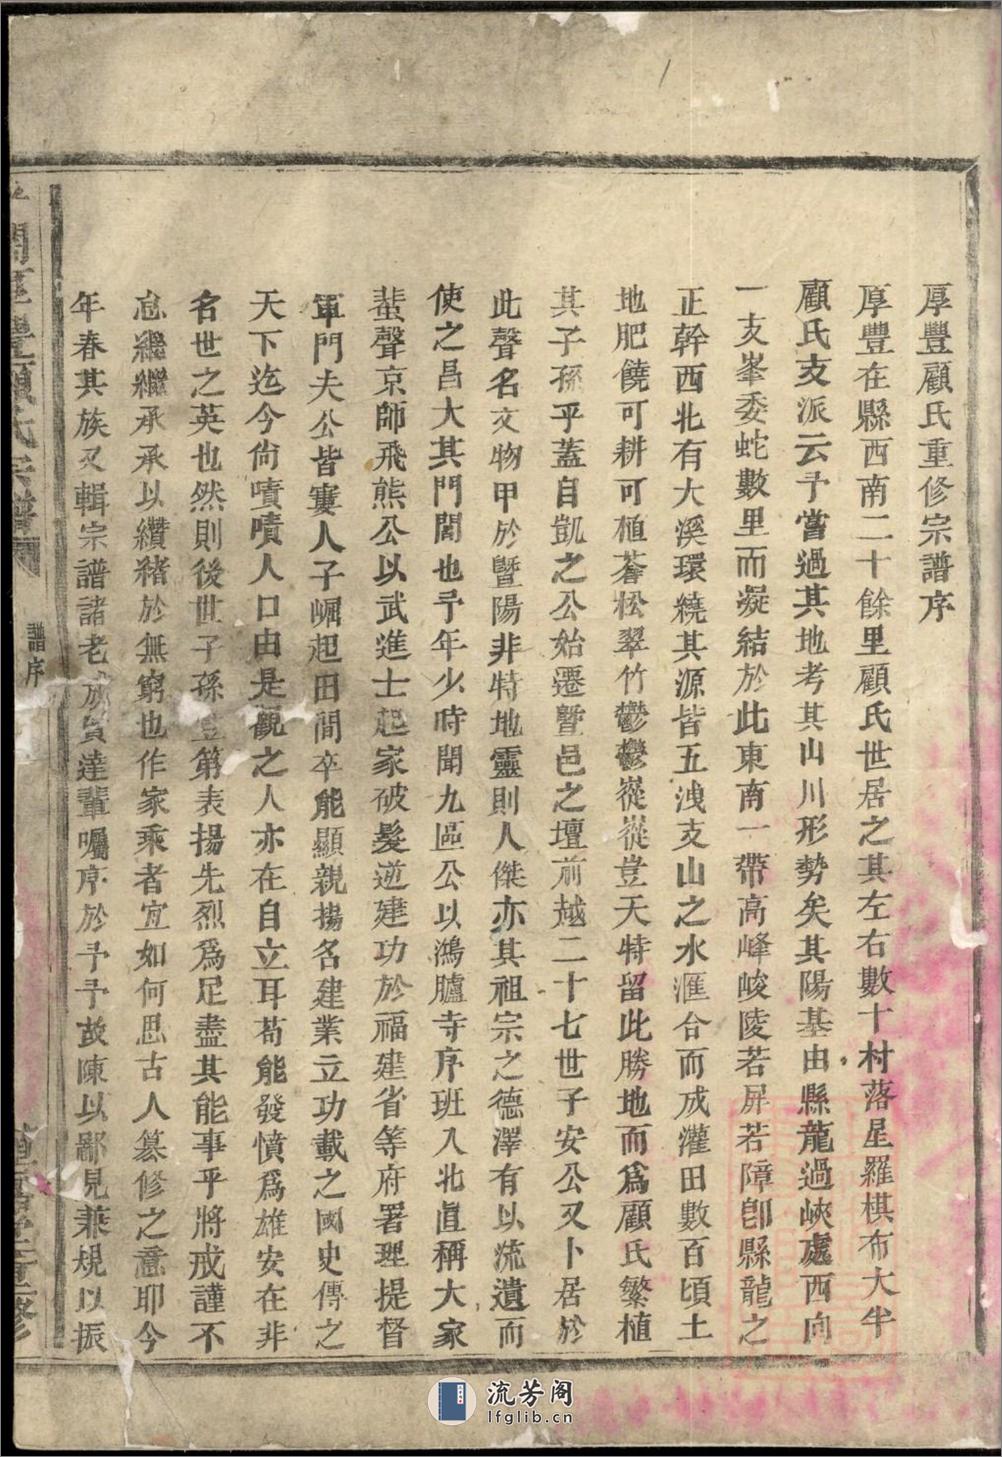 厚豐顧氏重修宗譜序
厚豐在縣西南二十餘里顧氏世居之其左右數十村落星羅棋布大半
顧氏支派云予嘗過其地考其山川形勢矣其陽基由縣龍過峽處西向
一支峯委蛇數里而凝結於此東南一帶高峰峻陵若屏若障卽縣龍之
正幹西北有大溪環繞其源皆五洩支山之水滙合而成灌田數百頃土
地肥饒可耕可植蒼松翠竹鬱鬱蓯蓯豈天特留此勝地而爲顧氏繁植
其子孫乎蓋自凱之公始遷暨邑之壇前越二十七世子安公又卜居於
此聲名文物甲於暨陽非特地靈則人傑亦其祖宗之德澤有以流遺而
使之昌大其門閭也予年少時聞九區公以鴻臚寺序班入北直稱大家
蜚聲京師飛熊公以武進士起家破髮逆建功於福建省等府署理提督
軍門夫公皆寠人子崛起田間卒能顯親揚名建業立功載之國史傳之
天下迄今尙嘖嘖人口由是觀之人亦在自立耳苟能發憤爲雄安在非
名世之英也然則後世子孫豈第表揚先烈爲足盡其能事乎將戒謹不
怠繼繼承承以纘緒於無窮也作家乘者宜如何思古人篡修之意耶今
年春其族又輯宗譜諸老成賢達輩囑序於予予故陳以鄙見兼規以振
豐顧氏宗譜
譜序
重修
流芳阁
lfglib.cn